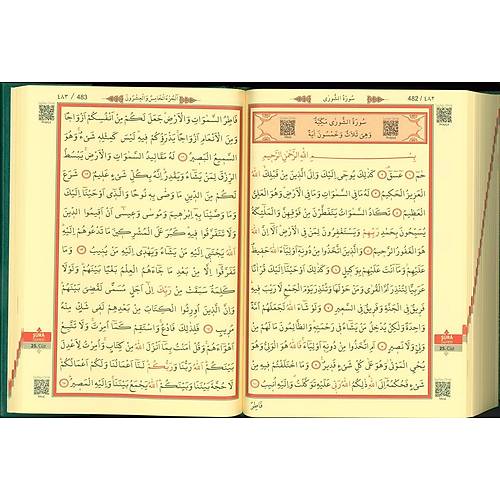 482 / ٤٨٢
سُورَةُ الشُّورٰى
سُورَةُ الشُّورٰى مَكِّيَّةٌ
وَهِيَ ثَلَاثٌ وَخَمْسُونَ اٰيَةً
بِسْمِ اللّٰهِ الرَّحْمٰنِ الرَّحِيمِ
حٰمٓ ﴿١﴾ عٓسٓقٓ ﴿٢﴾ كَذٰلِكَ يُوحِٓي اِلَيْكَ وَاِلَى الَّذِينَ مِنْ قَبْلِكَ اللّٰهُ
الْعَزِيزُ الْحَكِيمُ ﴿٣﴾ لَهُ مَا فِي السَّمٰوَاتِ وَمَا فِي الْاَرْضِ وَهُوَ الْعَلِيُّ
الْعَظِيمُ ﴿٤﴾ تَكَادُ السَّمٰوَاتُ يَتَفَطَّرْنَ مِنْ فَوْقِهِنَّ وَالْمَلٰٓئِكَةُ
يُسَبِّحُونَ بِحَمْدِ رَبِّهِمْ وَيَسْتَغْفِرُونَ لِمَنْ فِي الْاَرْضِ اَلَٓا اِنَّ اللّٰهَ
هُوَ الْغَفُورُ الرَّحِيمُ ﴿٥﴾ وَالَّذِينَ اتَّخَذُوا مِنْ دُونِهِٓ اَوْلِيَٓاءَ اللّٰهُ حَفِيظٌ
عَلَيْهِمْ وَمَٓا اَنْتَ عَلَيْهِمْ بِوَكِيلٍ ﴿٦﴾ وَكَذٰلِكَ اَوْحَيْنَٓا اِلَيْكَ قُرْاٰنًا
عَرَبِيًّا لِتُنْذِرَ اُمَّ الْقُرٰى وَمَنْ حَوْلَهَا وَتُنْذِرَ يَوْمَ الْجَمْعِ لَا رَيْبَ فِيهِ
فَرِيقٌ فِي الْجَنَّةِ وَفَرِيقٌ فِي السَّعِيرِ ﴿٧﴾ وَلَوْ شَٓاءَ اللّٰهُ لَجَعَلَهُمْ اُمَّةً
وَاحِدَةً وَلٰكِنْ يُدْخِلُ مَنْ يَشَٓاءُ فِي رَحْمَتِهِ وَالظَّالِمُونَ مَا لَهُمْ مِنْ
وَلِيٍّ وَلَا نَصِيرٍ ﴿٨﴾ اَمِ اتَّخَذُوا مِنْ دُونِهِٓ اَوْلِيَٓاءَ فَاللّٰهُ هُوَ الْوَلِيُّ وَهُوَ
يُحْيِ الْمَوْتٰى وَهُوَ عَلٰى كُلِّ شَيْءٍ قَدِيرٌ ﴿٩﴾ وَمَا اخْتَلَفْتُمْ فِيهِ مِنْ
شَيْءٍ فَحُكْمُهُٓ اِلَى اللّٰهِ ذٰلِكُمُ اللّٰهُ رَبِّي عَلَيْهِ تَوَكَّلْتُ وَاِلَيْهِ اُنِيبُ ﴿١٠﴾
فَاطِرُ
ŞÛRA
25. Cüz
٤٨٣ / 483
اَلْجُزْءُ الْخَامِسُ وَالْعِشْرُونَ
فَاطِرُ السَّمٰوَاتِ وَالْاَرْضِ جَعَلَ لَكُمْ مِنْ اَنْفُسِكُمْ اَزْوَاجًا
وَمِنَ الْاَنْعَامِ اَزْوَاجًا يَذْرَؤُكُمْ فِيهِ لَيْسَ كَمِثْلِهِ شَيْءٌ وَهُوَ
السَّمِيعُ الْبَصِيرُ ﴿١١﴾ لَهُ مَقَالِيدُ السَّمٰوَاتِ وَالْاَرْضِ يَبْسُطُ
الرِّزْقَ لِمَنْ يَشَٓاءُ وَيَقْدِرُ اِنَّهُ بِكُلِّ شَيْءٍ عَلِيمٌ ﴿١٢﴾ شَرَعَ
لَكُمْ مِنَ الدِّينِ مَا وَصّٰى بِهِ نُوحًا وَالَّذِٓي اَوْحَيْنَٓا اِلَيْكَ
وَمَا وَصَّيْنَا بِهِٓ اِبْرٰهِيمَ وَمُوسٰى وَعِيسٰٓى اَنْ اَقِيمُوا الدِّينَ
وَلَا تَتَفَرَّقُوا فِيهِ كَبُرَ عَلَى الْمُشْرِكِينَ مَا تَدْعُوهُمْ اِلَيْهِ
اَللّٰهُ يَجْتَبِٓي اِلَيْهِ مَنْ يَشَٓاءُ وَيَهْدِٓي اِلَيْهِ مَنْ يُنِيبُ ﴿١٣﴾ وَمَا
تَفَرَّقُٓوا اِلَّا مِنْ بَعْدِ مَا جَٓاءَهُمُ الْعِلْمُ بَغْيًا بَيْنَهُمْ وَلَوْلَا
كَلِمَةٌ سَبَقَتْ مِنْ رَبِّكَ اِلٰٓى اَجَلٍ مُسَمًّى لَقُضِيَ بَيْنَهُمْ
وَاِنَّ الَّذِينَ اُورِثُوا الْكِتَابَ مِنْ بَعْدِهِمْ لَفِي شَكٍّ مِنْهُ
مُرِيبٍ ﴿١٤﴾ فَلِذٰلِكَ فَادْعُ وَاسْتَقِمْ كَمَٓا اُمِرْتَ وَلَا تَتَّبِعْ
اَهْوَٓاءَهُمْ وَقُلْ اٰمَنْتُ بِمَٓا اَنْزَلَ اللّٰهُ مِنْ كِتَابٍ وَاُمِرْتُ لِاَعْدِلَ
بَيْنَكُمْ اَللّٰهُ رَبُّنَا وَرَبُّكُمْ لَنَٓا اَعْمَالُنَا وَلَكُمْ اَعْمَالُكُمْ
لَا حُجَّةَ بَيْنَنَا وَبَيْنَكُمْ اَللّٰهُ يَجْمَعُ بَيْنَنَا وَاِلَيْهِ الْمَصِيرُ ﴿١٥﴾
ŞÛRA
25. Cüz